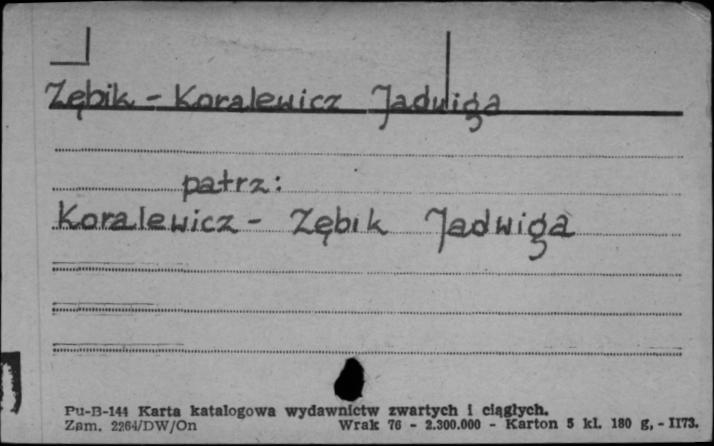 Zębik - Koralewicz Jadwiga
patrz:
Koralewicz - Zębik Jadwiga
Pu-B-144 Karta katalogowa wydawnictw zwartych i ciągłych.
Zam. 2264/DW/On Wrak 76 - 2.300.000 - Karton 5 kl. 180 g, - II73.